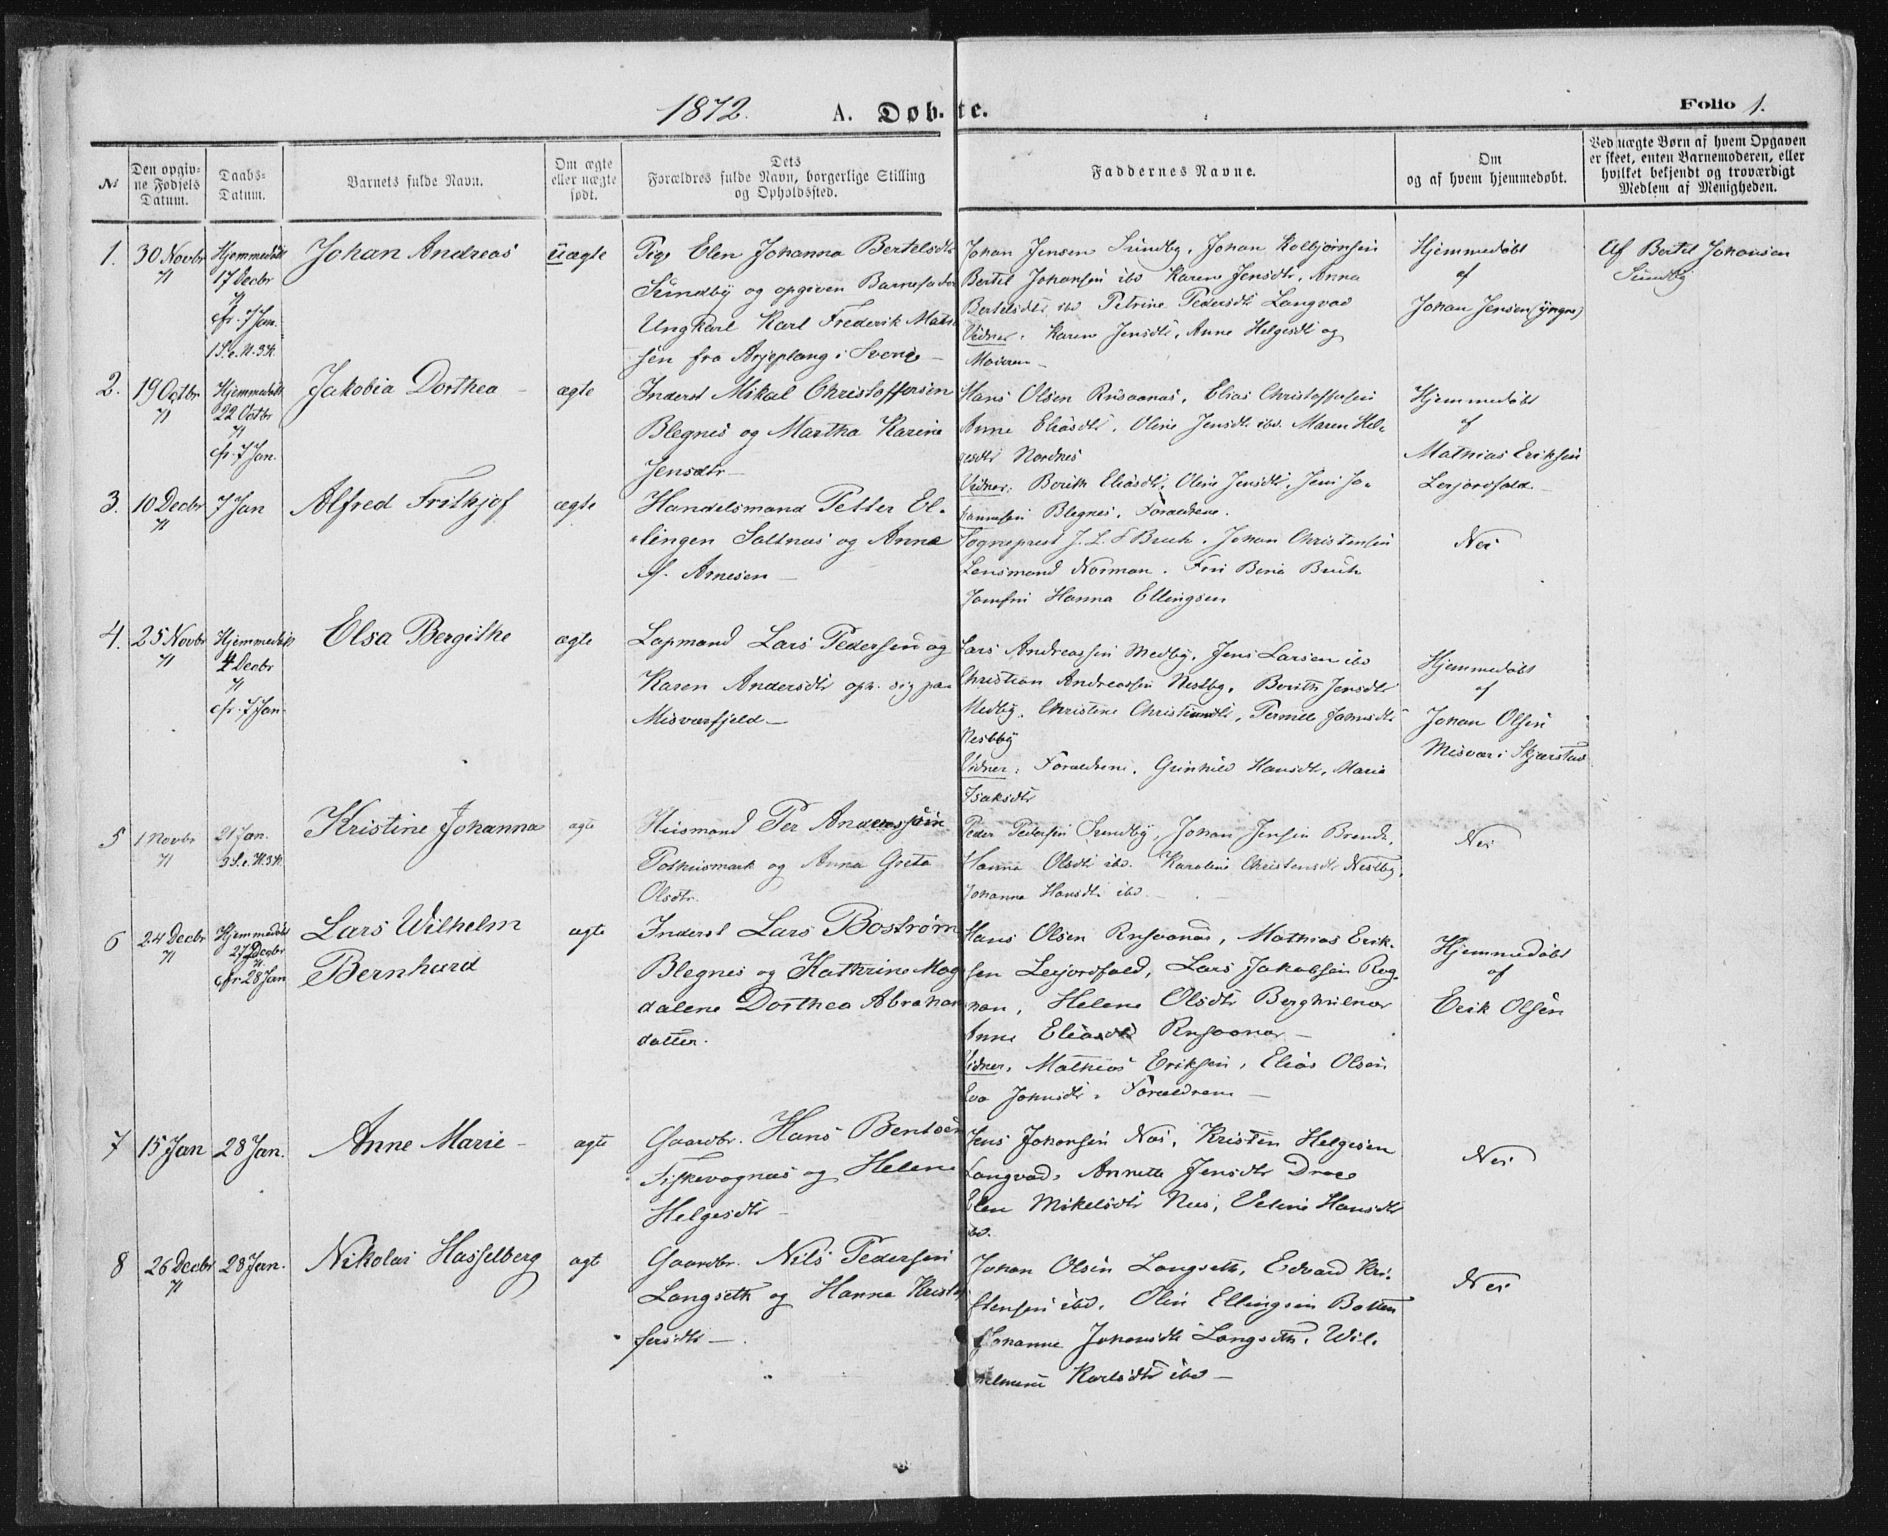 1872. A. Døbte. Folio 1.
№
Den opgivne Fødsels Datum.
Daabs-Datum.
Barnets fulde Navn.
Om ægte eller uægte født.
Dets Forældres fulde Navn, borgerlige Stilling og Opholdssted.
Faddernes Navne.
Om og af hvem hjemmedøbt.
Ved uægte Børn af hvem Opgaven er skeet, enten Barnemoderen, eller hvilket bekjendt og troværdigt Medlem af Menigheden.
1.
30 Novbr
71
Hjemmedøbt
17 Decbr
71
cfr. 7 Jan.
1 S. e. H. 3 K.
Johan Andreas
uægte
Pige Elen Johanna Bertelsdtr
Sundby og opgiven Barnefader
Ungkarl Karl Frederik Mats
sen fra Arjeplaug i Sverige
Johan Jensen Sundby, Johan Kolbjørnsen
Bertel Johansen ibd Karen Jensdtr, Anna
Bertelsdtr ibd Petrine Pedersdtr Langvad
Vidner. Karen Jensdtr, Anne Helgesdtr og
Moderen
Hjemmedøbt
af
Johan Jensen (yngre)
Af Bertel Johansen
Sundby
2.
19 Octbr
71
Hjemmedøbt
22 Octbr
71
cfr. 7 Jan.
Jakobia Dorthea
ægte
Inderst Mikal Christoffersen
Blegnes og Martha Karine
Jensdtr
Hans Olsen Rusaanes, Elias Christoffersen
Anne Eliasdtr, Oline Jensdtr ibd. Maren Hel-
gesdtr Nordnes
Vidner: Berith Eliasdtr, Oline Jensdtr, Jens Jo-
hannsen Blegnes, Forældrene.
Hjemmedøbt
af
Mathias Eriksen
Lerjordfald
3.
10 Decbr
71
7 Jan
Alfred Frithjof
ægte
Handelsmand Petter El-
lingsen Saltnes og Anna
f. Arnesen
Sogneprest J. L. Bruch. Johan Christensen
Lensmand Norman. Fru Bina Bruch
Jomfru Hanna Ellingsen
Nei
4.
25 Novbr
71
Hjemmedøbt
4 Decbr
71
cfr. 7 Jan.
Elsa Bergithe
ægte
Lapmand Lars Pedersen og
Karen Andersdtr oph. sig paa
Misværfjeld
Lars Andreassen Medby, Jens Larsen ibd
Christian Andreassen Nestby, Berith Jensdtr
Medby, Christine Christiansdtr, Pernille Johnsdtr
Nestby
Vidner: Forældrene, Gunhild Hansdtr, Maria
Isaksdtr
Hjemmedøbt
af
Johan Olsen
Misvær i Skjærstad
5
1 Novbr
71
21 Jan.
3 S. e. H. 3 K.
Kristine Johanna
ægte
Husmand Per Anderssen
Pothusmark og Anna Greta
Olsdtr.
Peder Pedersen Sundby, Johan Jensen Brende,
Hanna Olsdtr ibd. Karoline Christensdtr Nestby,
Johanna Hansdtr ibd
Nei
6
24 Decbr
71
Hjemmedøbt
27 Decbr
71.
cfr. 28 Jan
Lars Wilhelm
Bernhard
ægte
Inderst Lars Bostrøm
Blegnes og Kathrine Mag
dalene Dorthea Abraham
datter.
Hans Olsen Rusaanes, Mathias Erik-
sen Lerjordfald, Lars Jakobsen Rog
nan, Helene Olsdtr Berghulnes
Anne Eliasdtr Rusaanes
Vidner. Mathias Eriksen, Elias Olsen
Eva Johnsdtr, Forældrene
Hjemmedøbt
af
Erik Olsen
7
15 Jan
28 Jan.
Anne Marie
ægte
Gaardbr. Hans Bentsen
Fiskevognæs og Helene
Helgesdtr
Jens Johansen Næs, Kristen Helgesen
Langvad, Annette Jensdtr
Elen Mikelsdtr Næs, Veline Hansdtr
ibd.
Nei
8
26 Decbr
71
28 Jan.
Nikolai Hasselberg
ægte
Gaardbr. Nils Pedersen
Langseth og Hanna Krist
fersdtr
Johan Olsen Langseth, Edvard Kri-
stensen ibd, Olin Ellingsen Botten
Johanne Johansdtr Langseth, Wil-
helmine Karlsdtr ibd
Nei